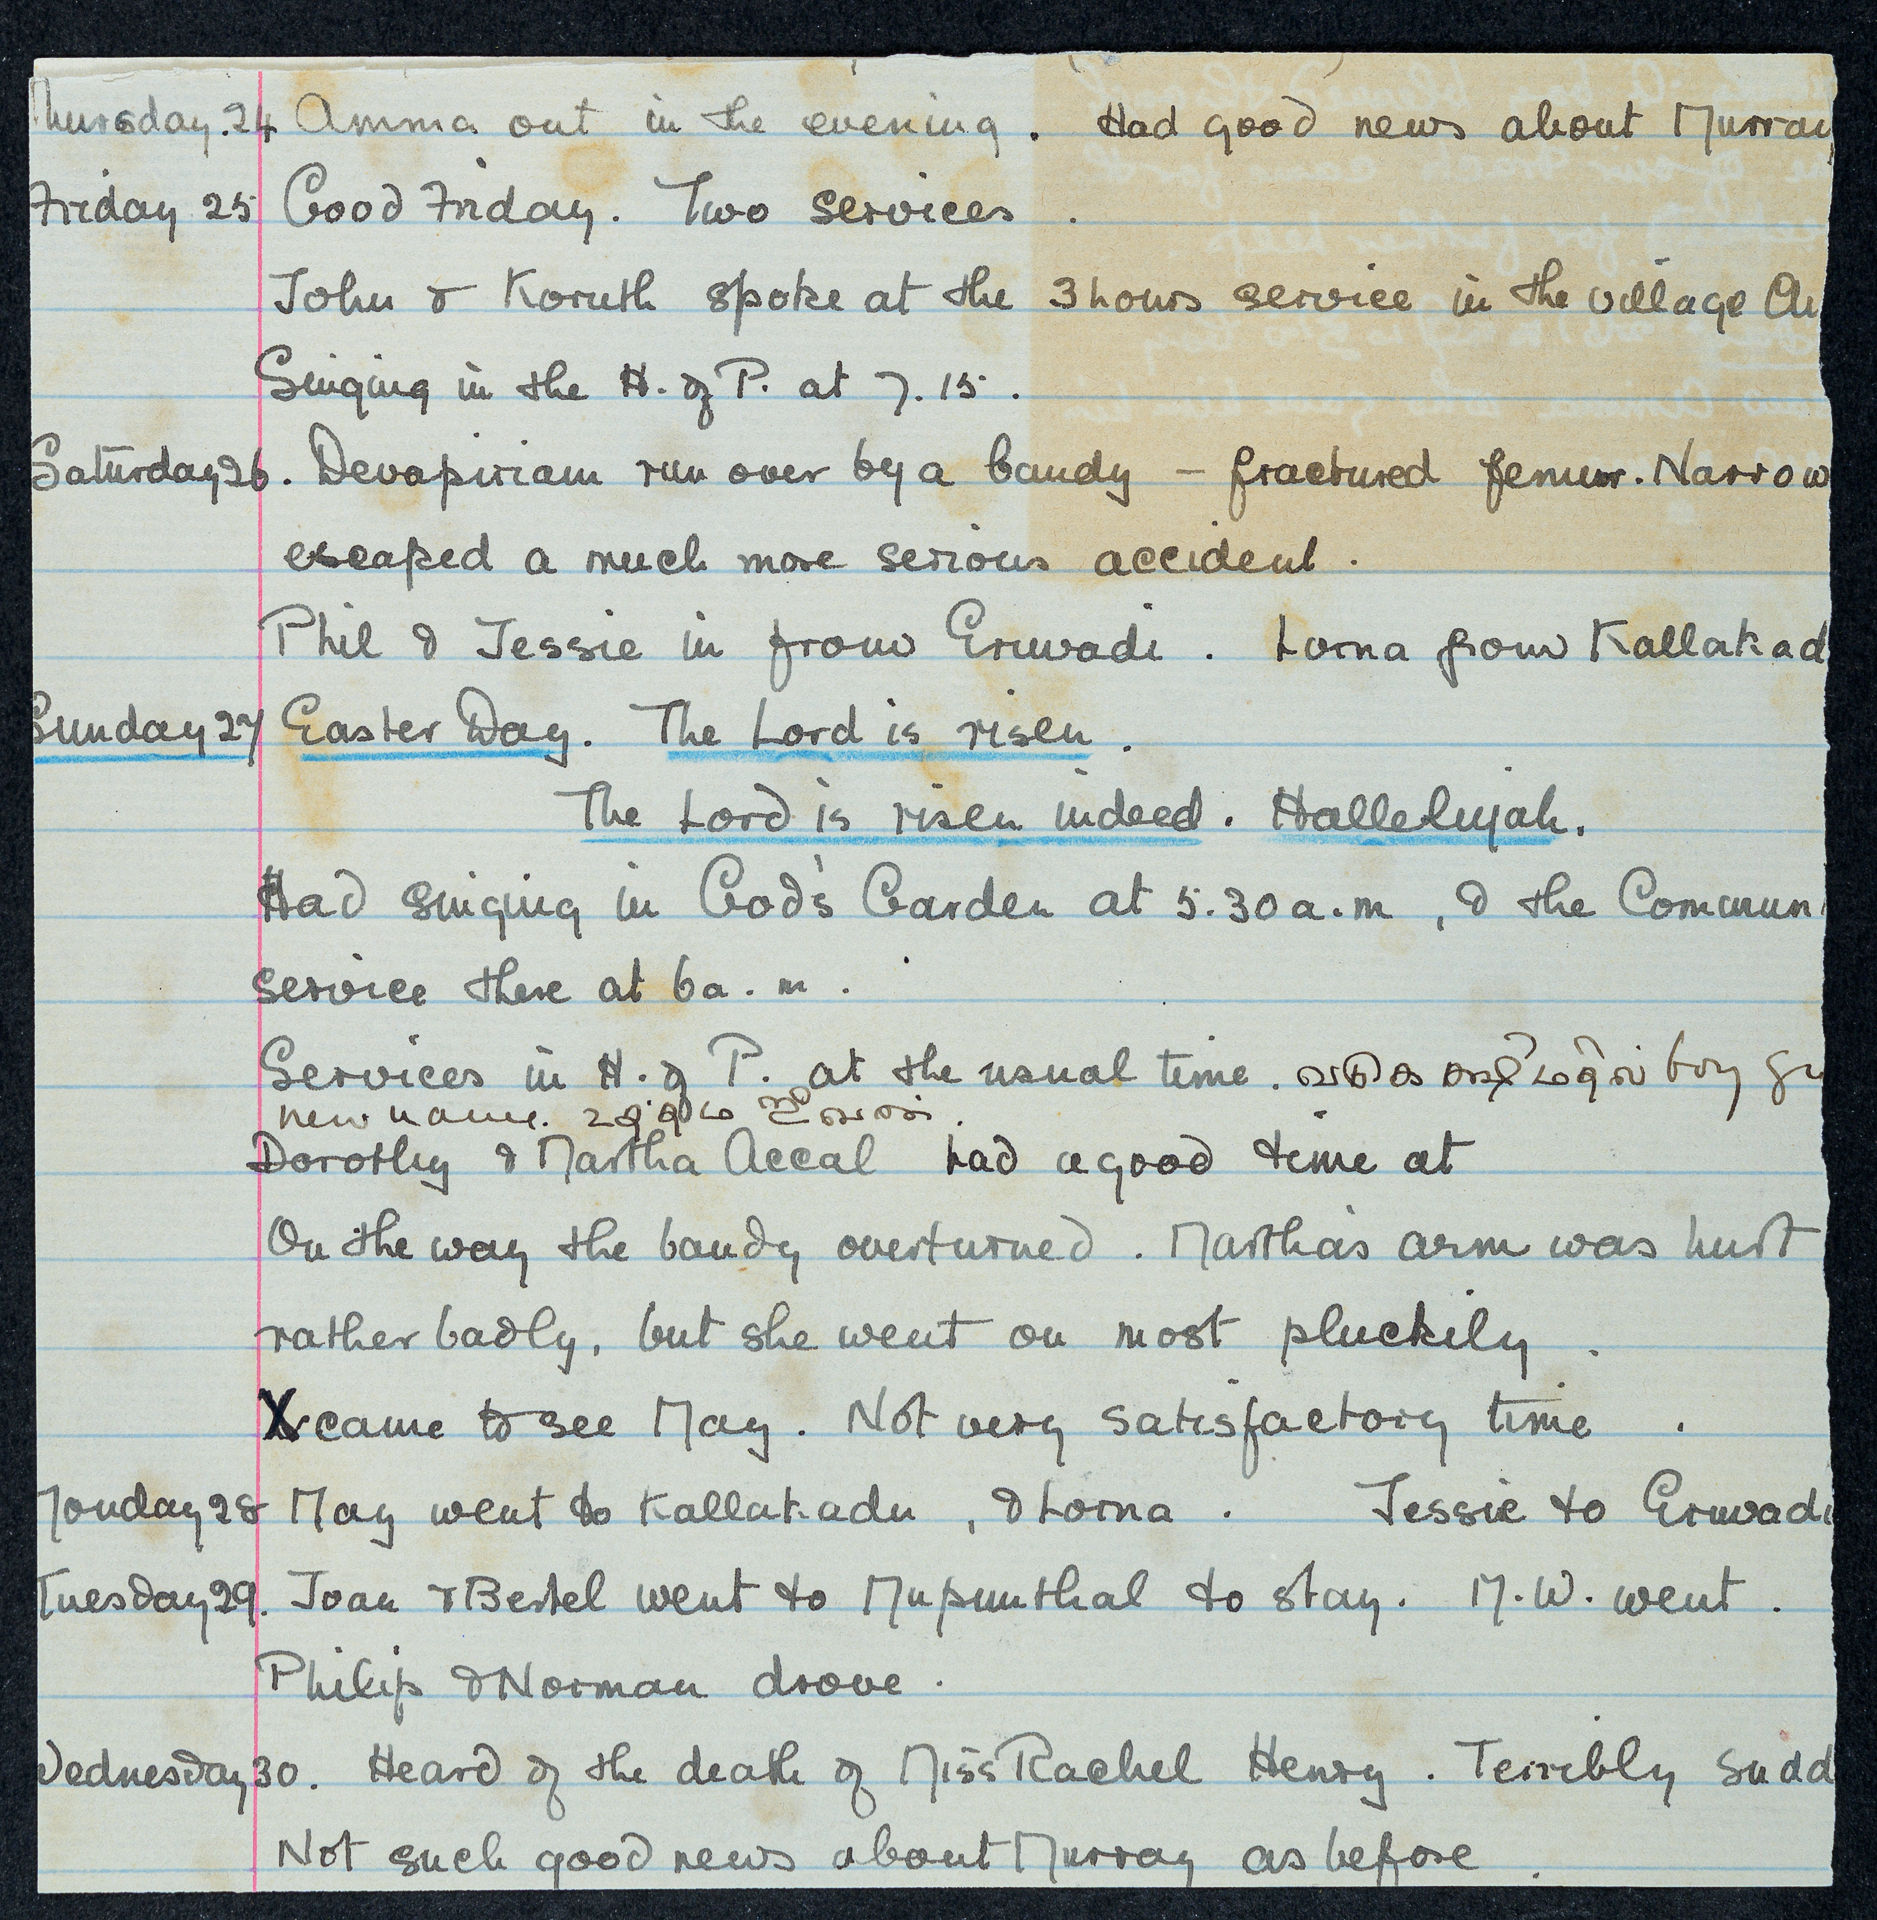 Thursday.24 Amma out in the evening. Had good news about Murray
Friday 25 Good Friday. Two services.
John & Koruth spoke at the 3 hours service in the village
Singing in the H. of P. at 7.15.
Saturday 26. Devapiriam run over by a bandy - fractured femur. Narrow
escaped a much more serious accident.
Phil & Jessie in from Eruvadi. Lorna from Kallakad
Sunday 27 Easter Day. The Lord is risen.
The Lord is risen indeed. Hallelujah.
Had singing in God's Garden at 5.30 a.m, & the Commun
service there at 6 a.m.
Services in H. of P. at the usual time. boy
new name.
Dorothy & Martha Accal had a good time at
On the way the bandy overturned. Martha's arm was hurt
rather badly, but she went on most pluckily.
X came to see May. Not very satisfactory time.
Monday 28 May went to Kallakadu, & Lorna. Jessie to Eruvadi
Tuesday 29. Joan & Bestel went to Mupunthal to stay. M.W. went.
Philip & Norman drove.
Wednesday 30. Heard of the death of Miss Rachel Henry. Terribly sudd
Not such good news about Murray as before.